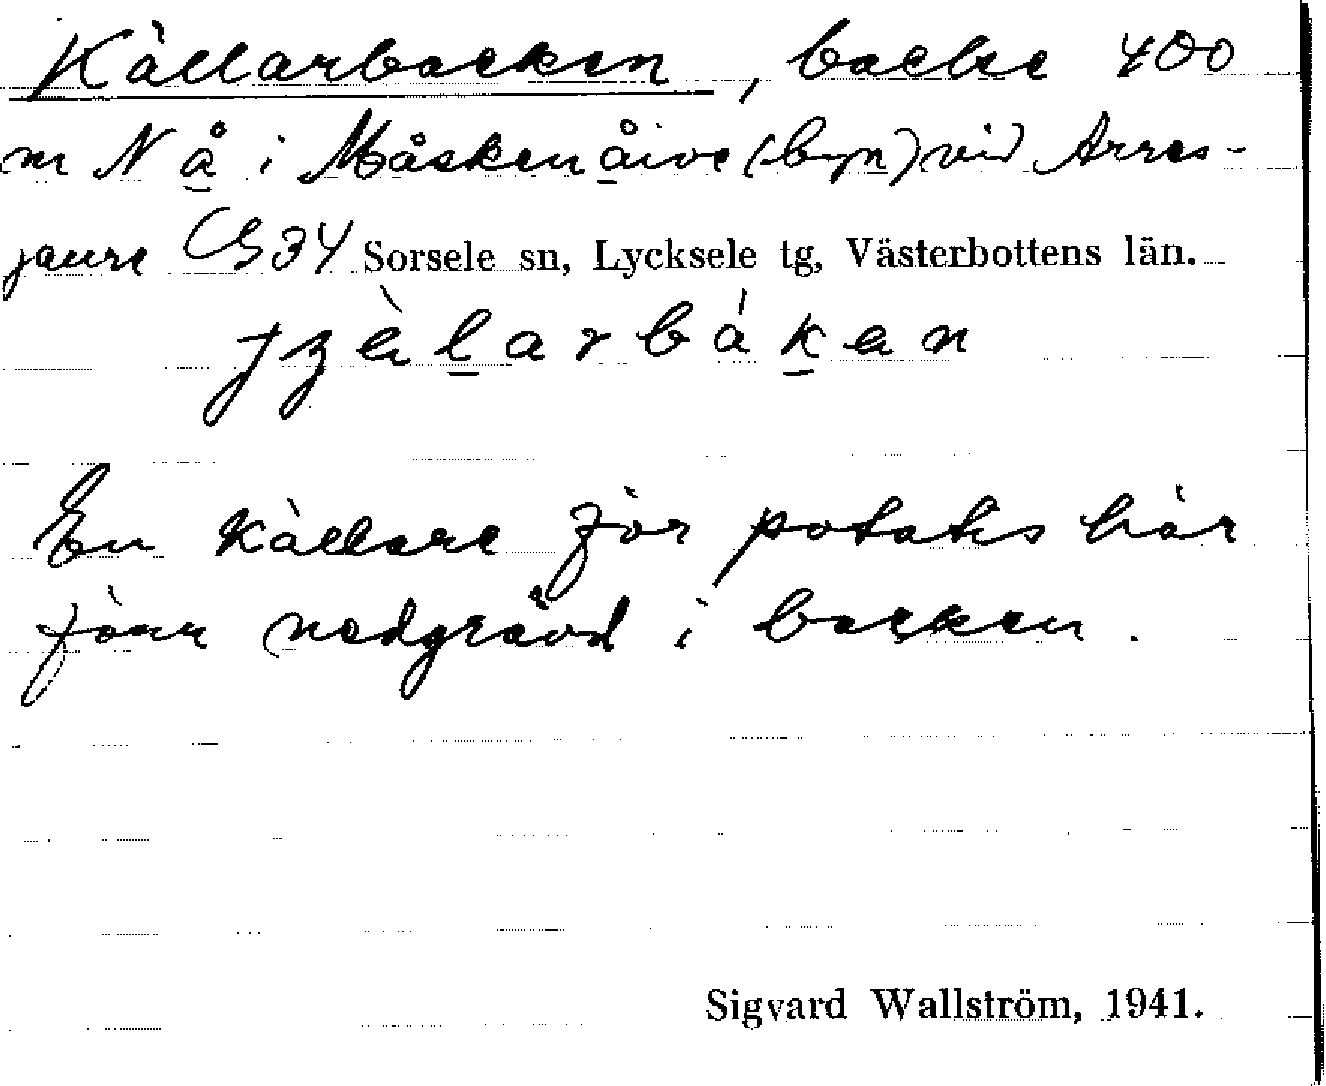 Källarbacken, backe 400
m N å i Måskenåive (byn) vid Arres-
jaure C534 Sorsele sn, Lycksele tg, Västerbottens län.
En källare för potatis här
förr nedgrävd i backen.
Sigvard Wallström, 1941.